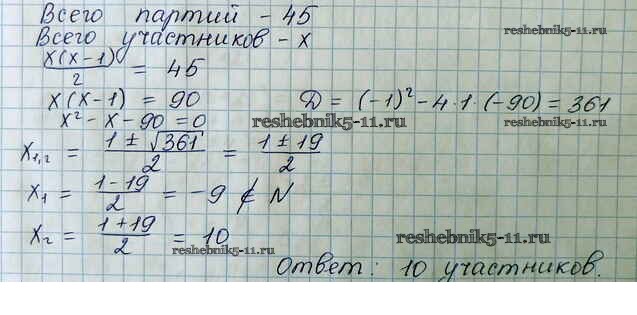 Всего партий - 45
reshebnik5-11.ru
Всего участников - x
x(x-1)/2 = 45
x(x-1) = 90
Д = (-1)² - 4·1·(-90) = 361
x² - x - 90 = 0
reshebnik5-11.ru
reshebnik5-11.ru
x₁,₂ = (1 ± √361)/2 = (1 ± 19)/2
x₁ = (1-19)/2 = -9 ∉ N
x₂ = (1+19)/2 = 10
reshebnik5-11.ru
reshebnik5-11.ru
Ответ: 10 участников.